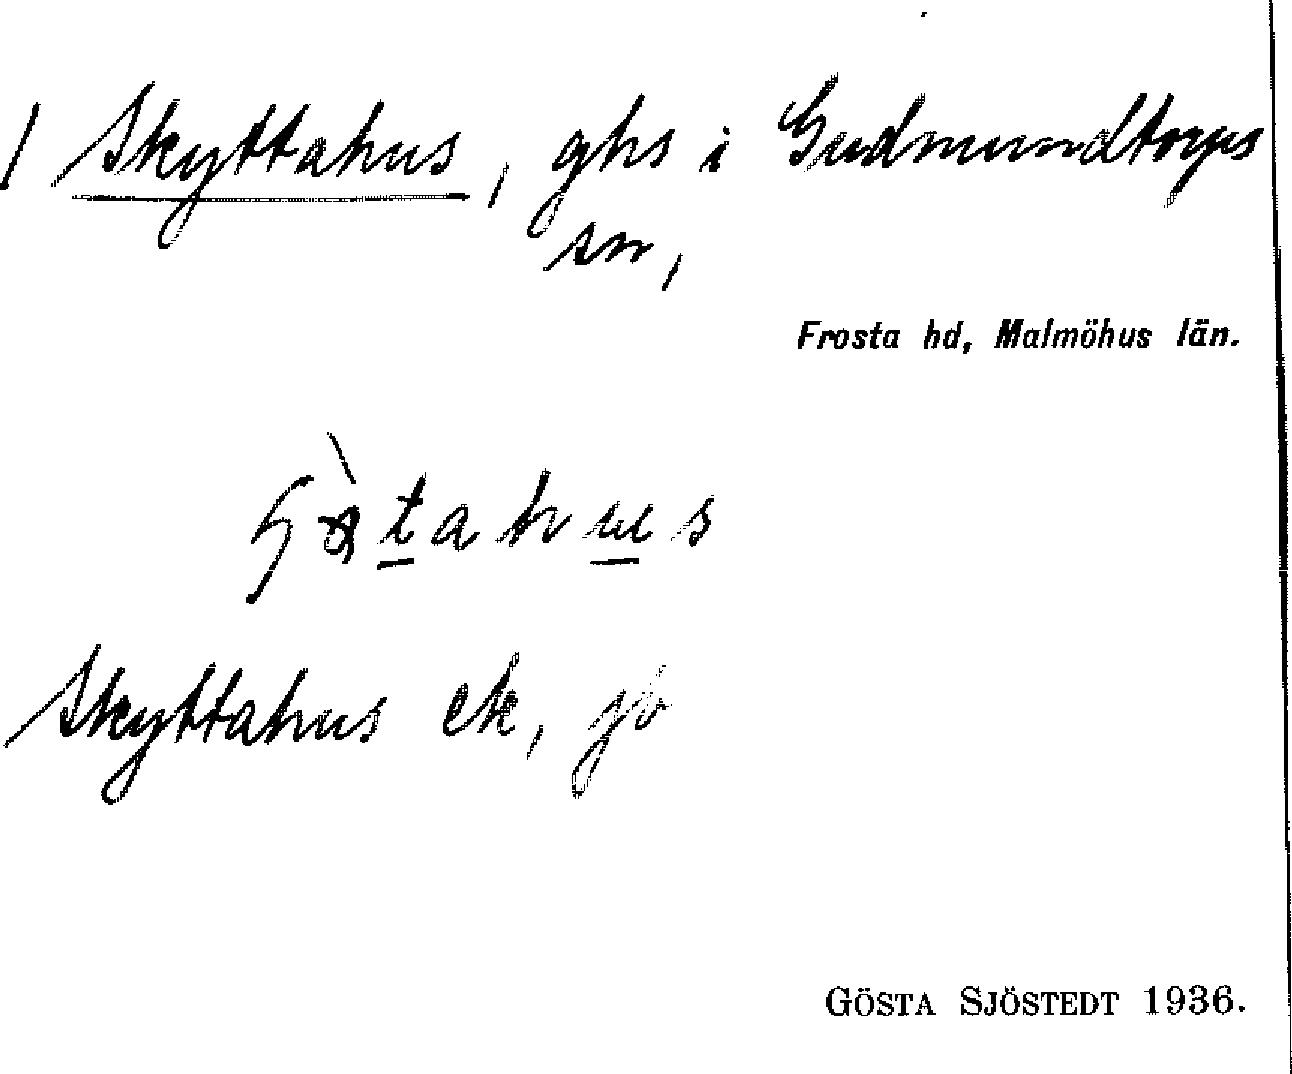 / Skyttahus, ghs i Gudmundtorps
sn,
Frosta hd, Malmöhus län.
Skyttahus ek, jb
GÖSTA SJÖSTEDT 1936.